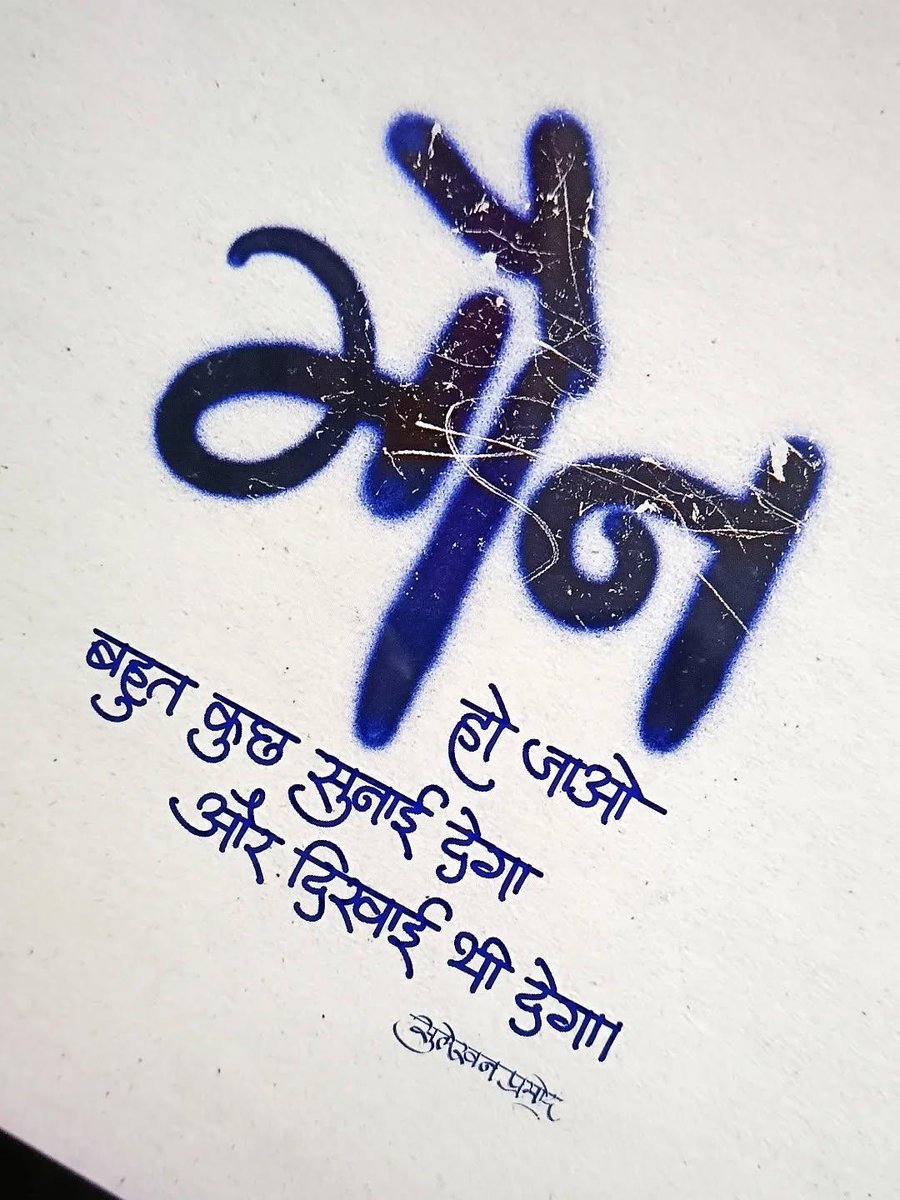 मौन
हो जाओ
बहुत कुछ सुनाई देगा
और दिखाई भी देगा।
सुलेखन प्रमोद